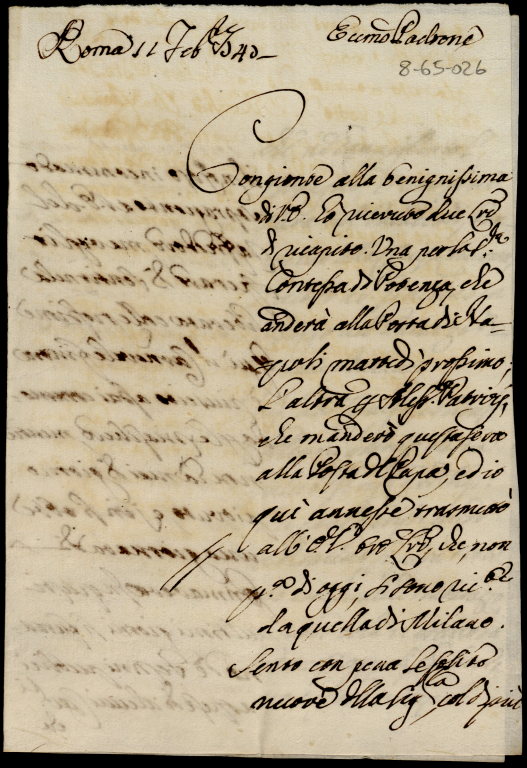 Roma 11 Feb.° 1643
Eccmo Padrone
8-65-026
Congionte alla benignissima
di V.E. ho ricevuto due Lre
di ricapito. Una per la S.ra
Contessa di Potenza, che
anderà alla Posta di Na-
poli martedì prossimo;
L'altra p Aless.o
che manderò questa sera
alla Posta del Papa, ed io
quì annesse trasmetto
all' E.V. tre Lre, che, non
p.a di oggi, si sono ric.te
da quella di Milano.
Sento con pena le solite
nuove della Sig.ra col di più